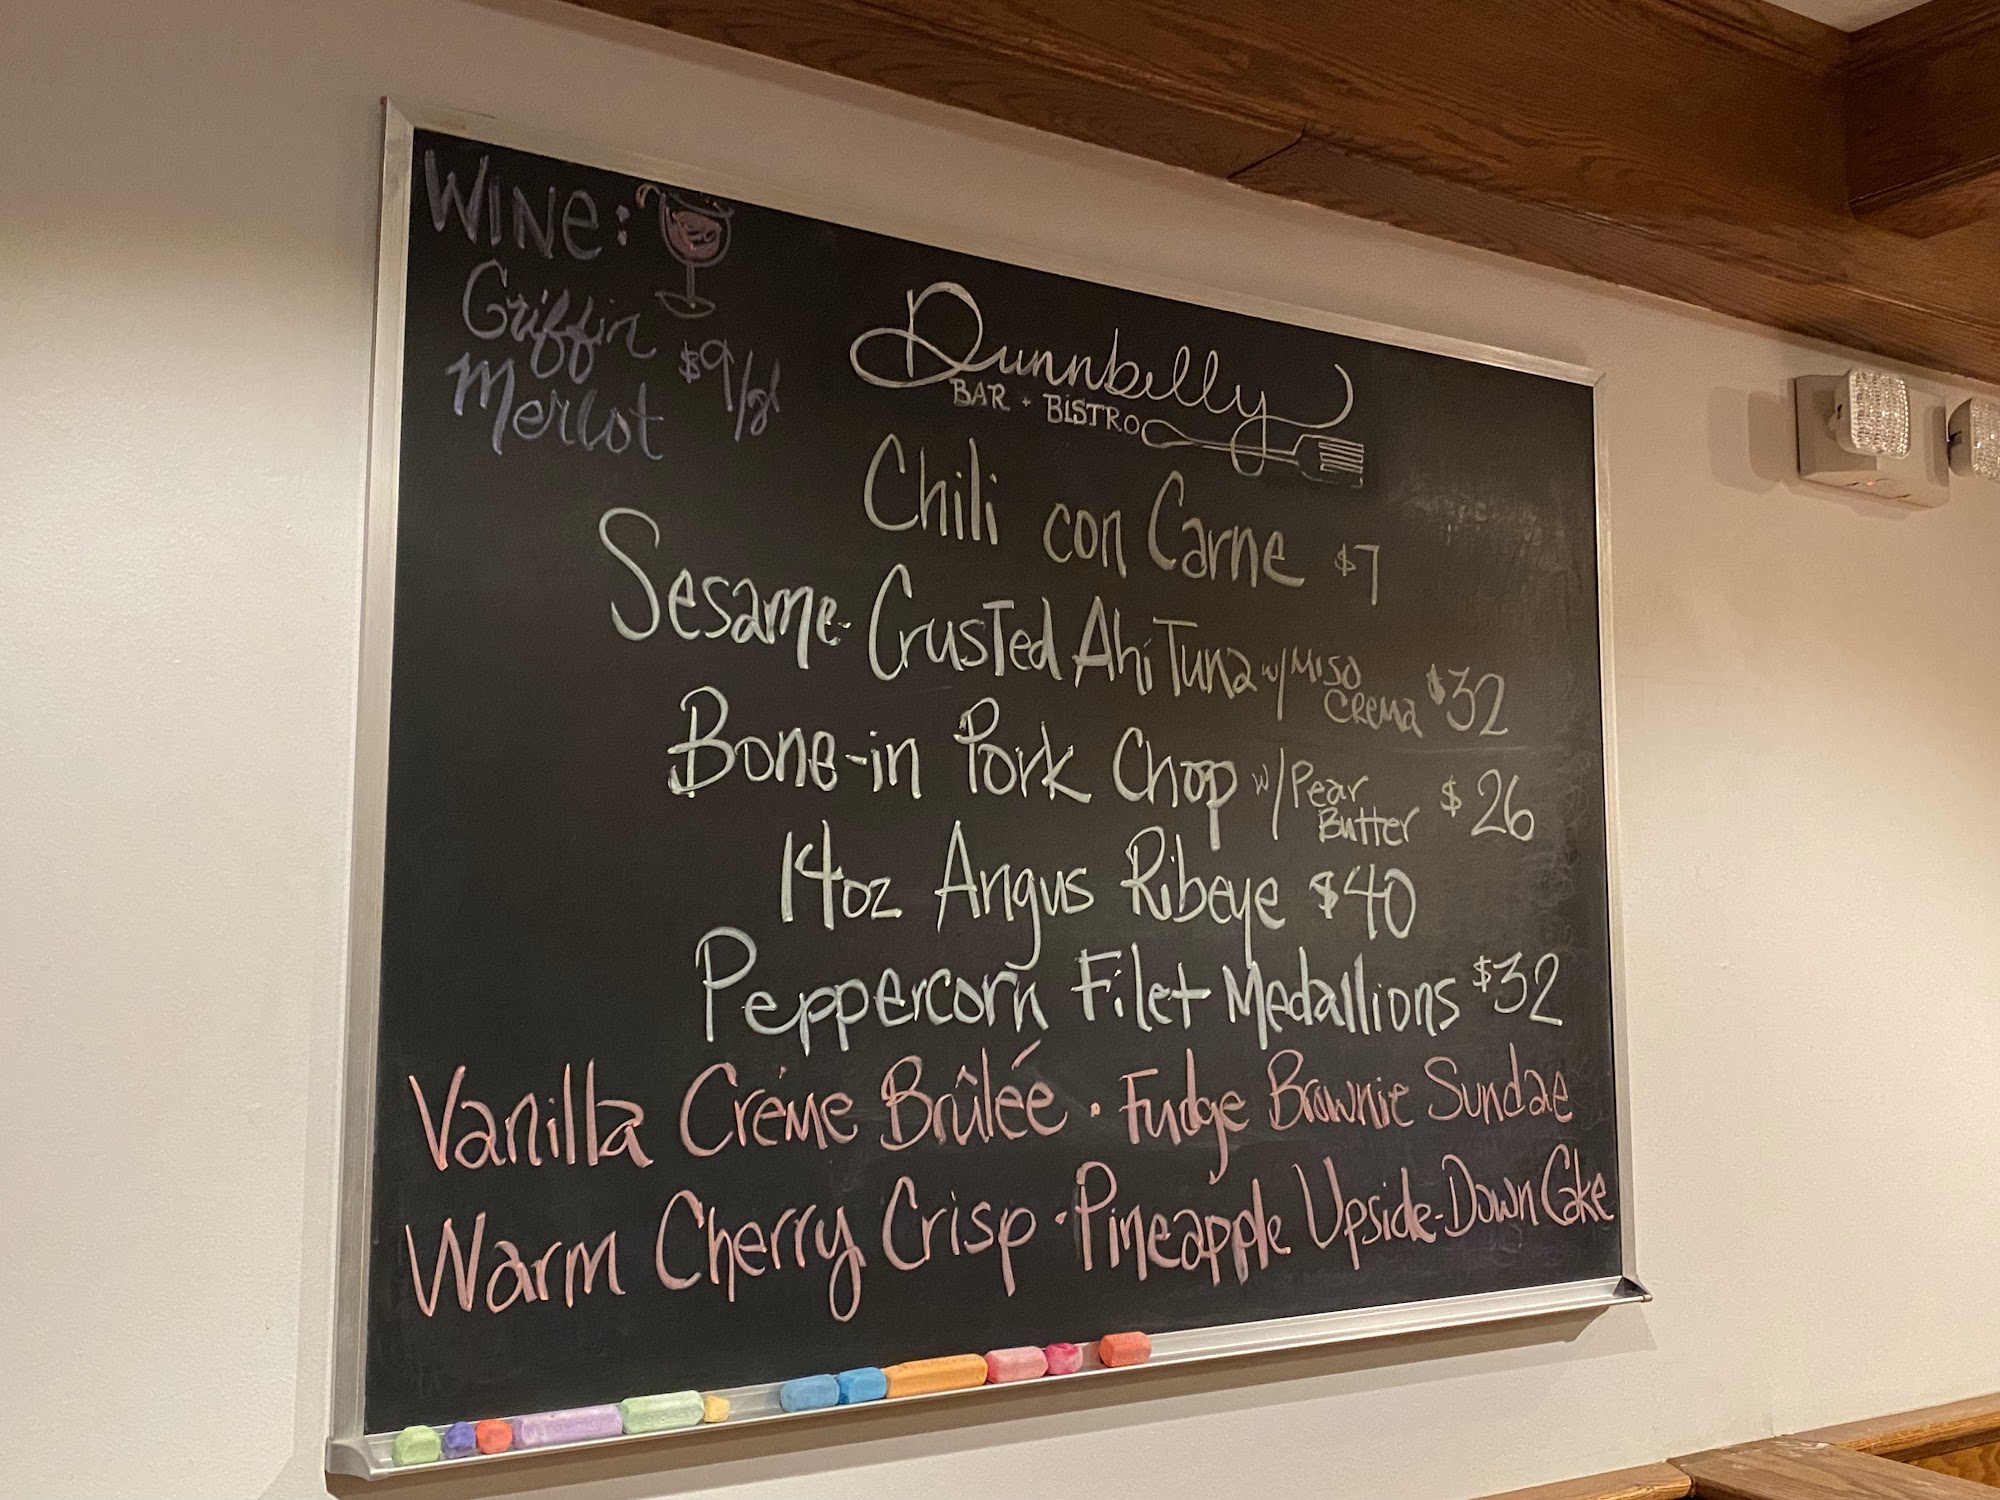 WINE:
Griffin
Merlot $9/gl
Dunnbelly
BAR + BISTRO
Chili con Carne $7
Sesame-Crusted Ahi Tuna w/ Miso
Crema $32
Bone-in Pork Chop w/ Pear
Butter $26
14oz Angus Ribeye $40
Peppercorn Filet Medallions $32
Vanilla Créme Brûlée · Fudge Brownie Sundae
Warm Cherry Crisp · Pineapple Upside-Down Cake